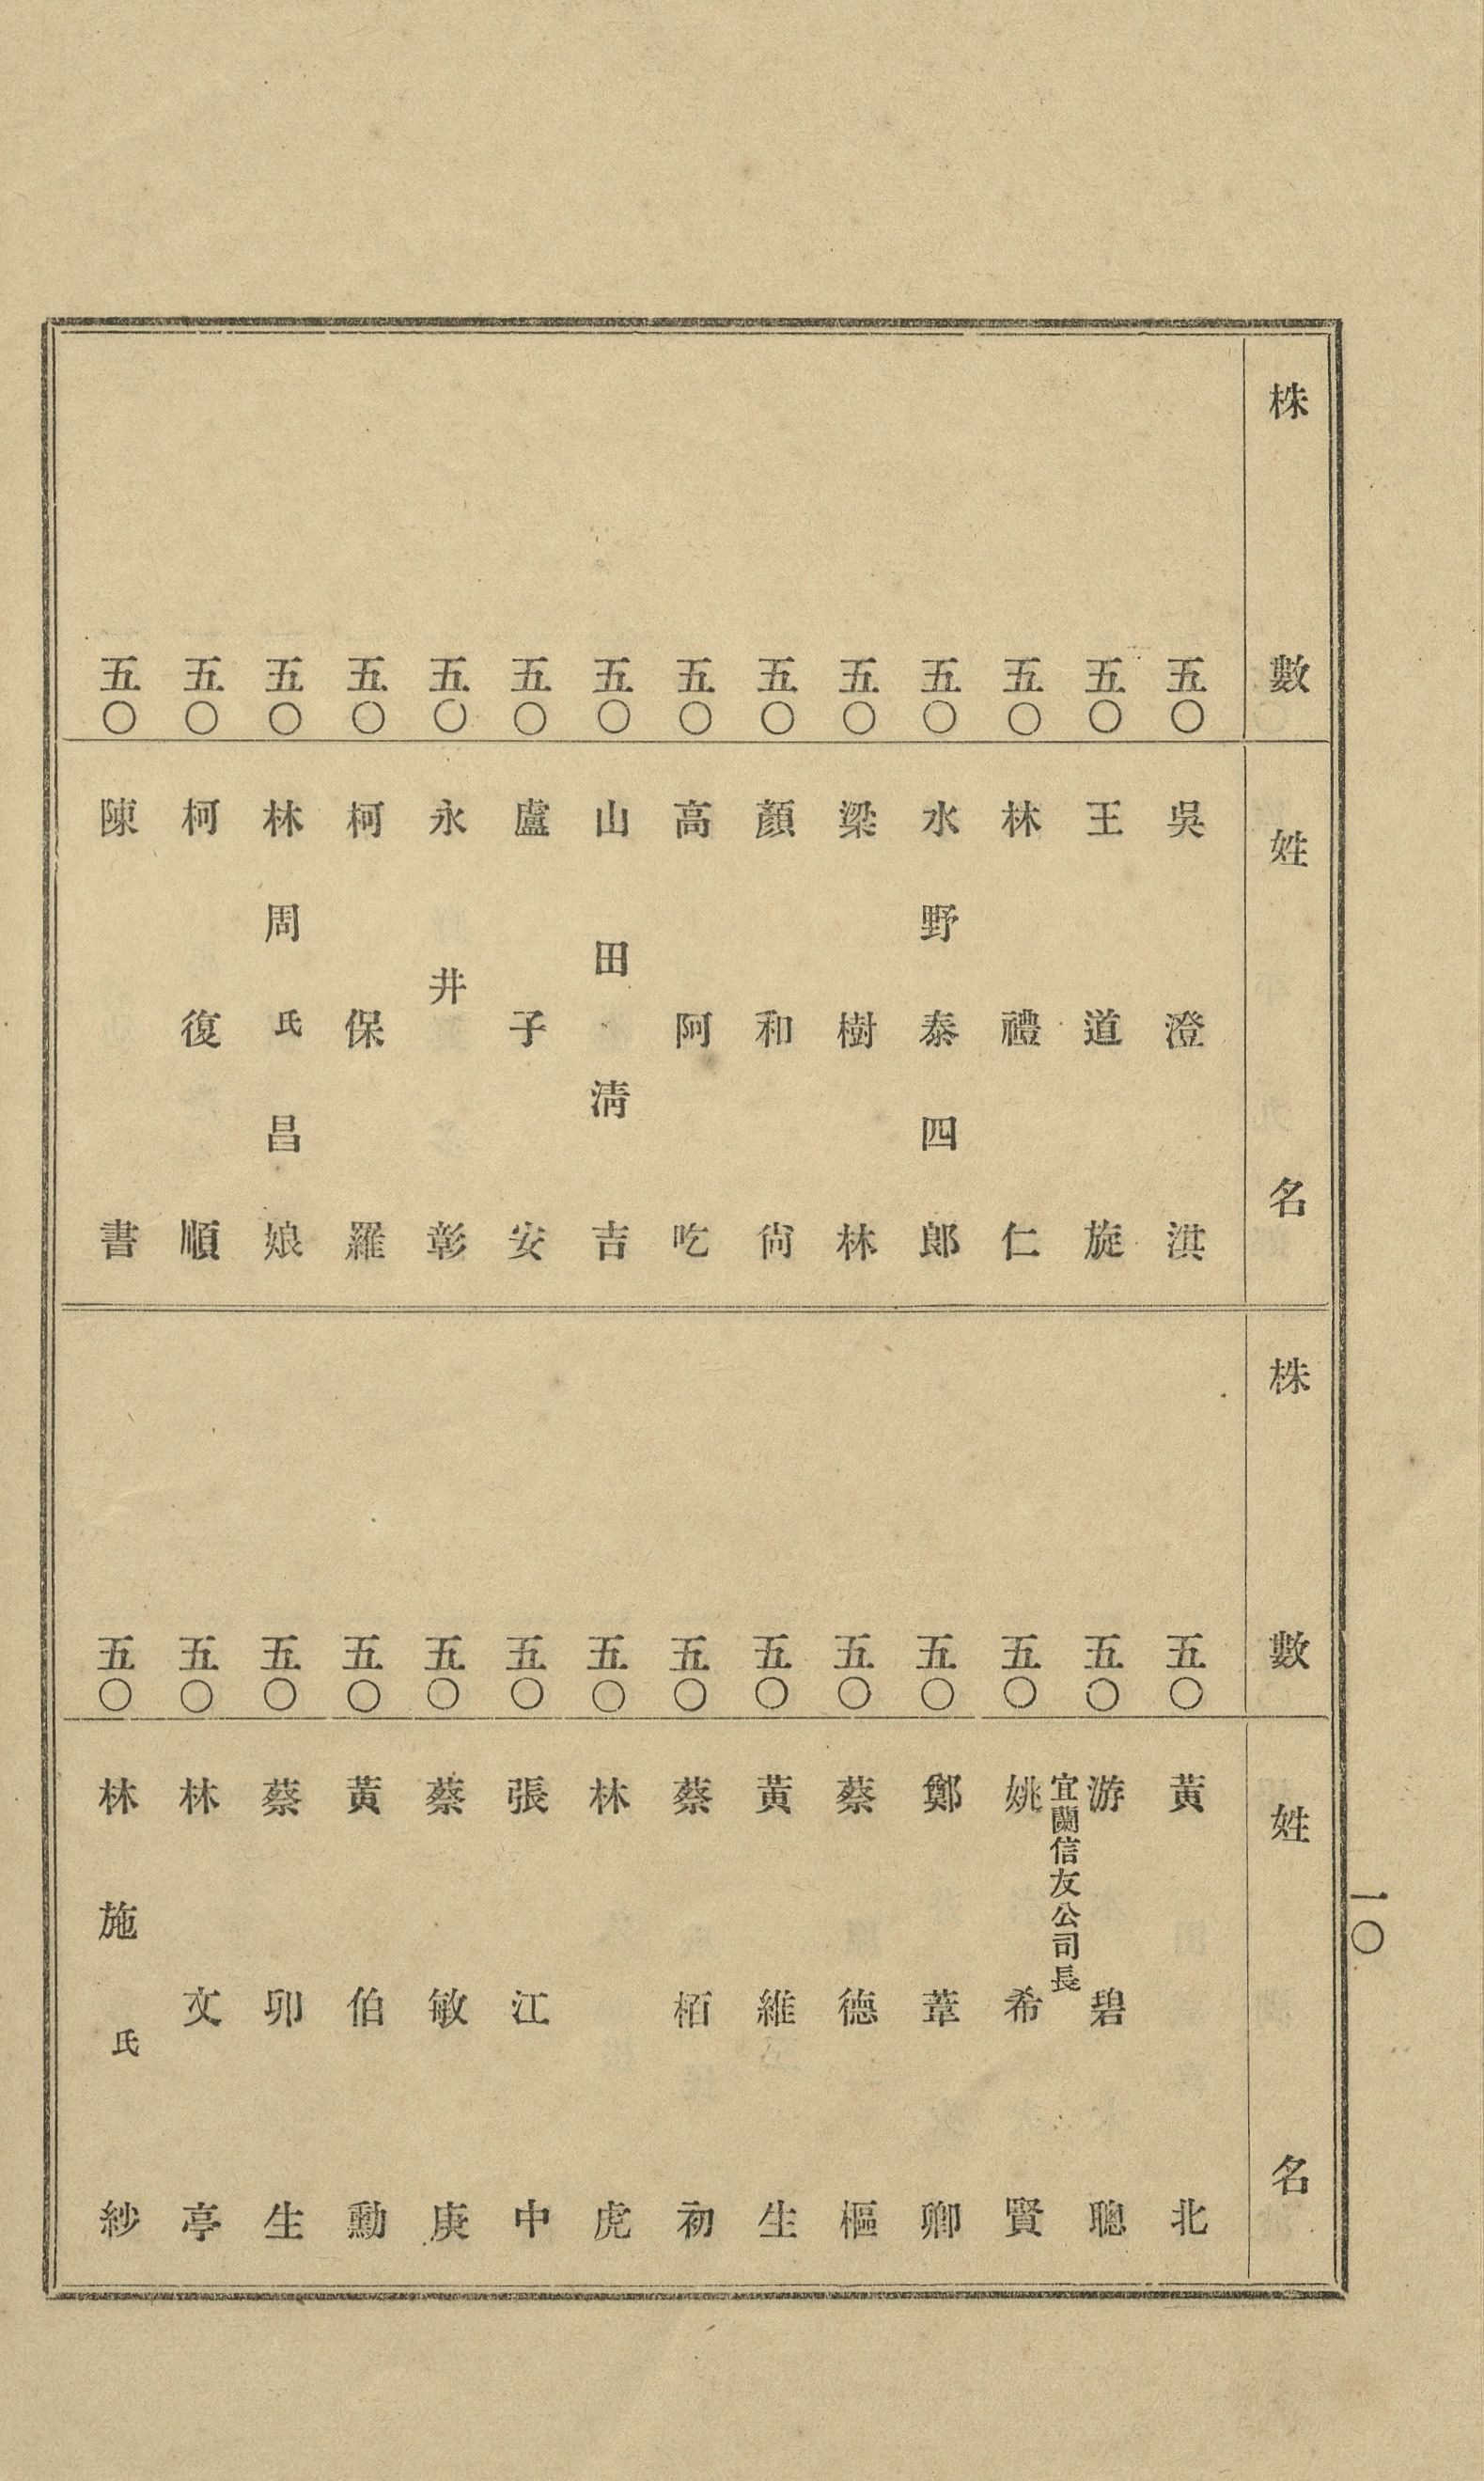 株數 姓名
五〇 吳澄淇
五〇 王道旋
五〇 林禮仁
五〇 水野泰四郎
五〇 梁樹林
五〇 顏和尙
五〇 高阿吃
五〇 山田淸吉
五〇 盧子安
五〇 永井彰
五〇 柯保羅
五〇 林周氏昌娘
五〇 柯復順
五〇 陳書
株數 姓名
五〇 黃北
五〇 游碧聰
五〇 宜蘭信友公司長 姚希賢
五〇 鄭葦卿
五〇 蔡德樞
五〇 黃維生
五〇 蔡栢初
五〇 林虎
五〇 張江中
五〇 蔡敏庚
五〇 黃伯勳
五〇 蔡卯生
五〇 林文亭
五〇 林施氏紗
一〇